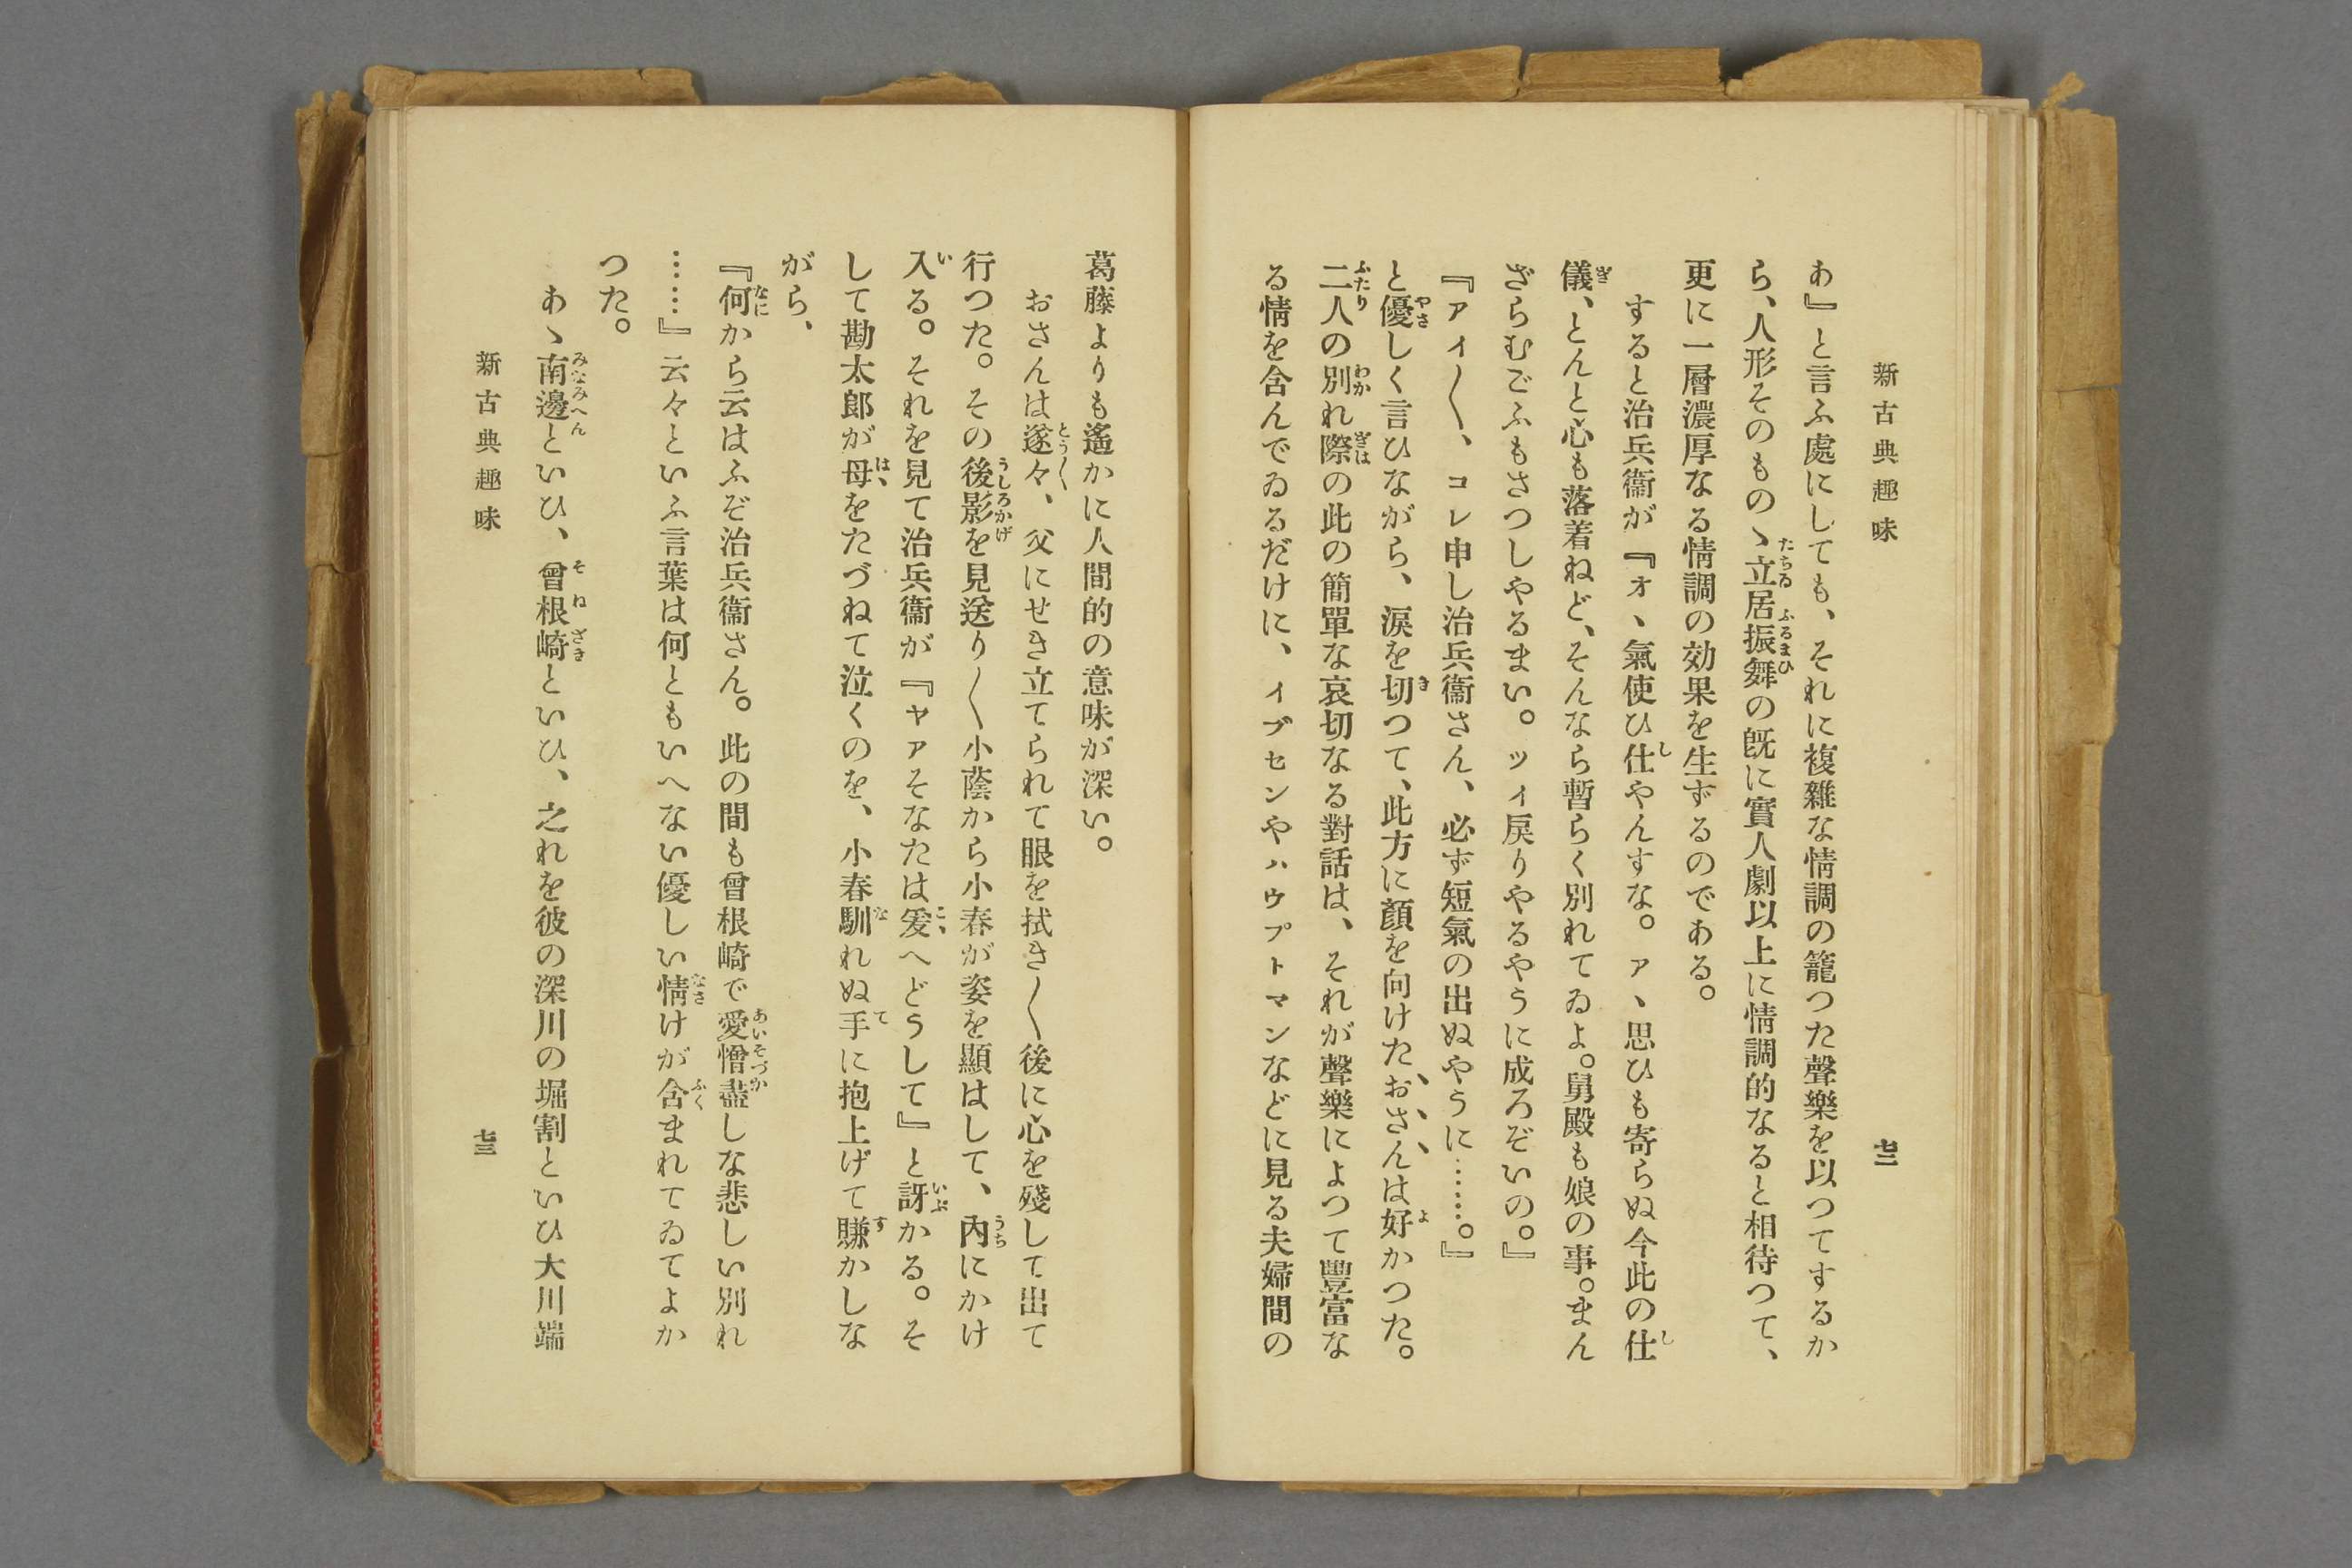 新古典趣味
七二
あ』と言ふ處にしても、それに複雜な情調の籠つた聲樂を以つてするか
ら、人形そのものゝ立居振舞の既に實人劇以上に情調的なると相待つて、
更に一層濃厚なる情調の効果を生ずるのである。
すると治兵衞が『オヽ氣使ひ仕やんすな。アヽ思ひも寄らぬ今此の仕
儀、とんと心も落着ねど、そんなら暫らく別れてゐよ。舅殿も娘の事。まん
ざらむごふもさつしやるまい。ツイ戻りやるやうに成ろぞいの。』
『アイ〱、コレ申し治兵衞さん、必ず短氣の出ぬやうに……。』
と優しく言ひながら、淚を切つて、此方に顏を向けたおさんは好かつた。
二人の別れ際の此の簡單な哀切なる對話は、それが聲樂によつて豐富な
る情を含んでゐるだけに、イブセンやハウプトマンなどに見る夫婦間の
葛藤よりも遙かに人間的の意味が深い。
おさんは遂々、父にせき立てられて眼を拭き〱後に心を殘して出て
行つた。その後影を見送り〱小蔭から小春が姿を顯はして、內にかけ
入る。それを見て治兵衞が『ヤァそなたは爰へどうして』と訝かる。そ
して勘太郞が母をたづねて泣くのを、小春馴れぬ手に抱上げて賺かしな
がら、
『何から云はふぞ治兵衞さん。此の間も曾根崎で愛憎盡しな悲しい別れ
……』云々といふ言葉は何ともいへない優しい情けが含まれてゐてよか
つた。
あゝ南邊といひ、曾根崎といひ、之れを彼の深川の堀割といひ大川端
新古典趣味
七三